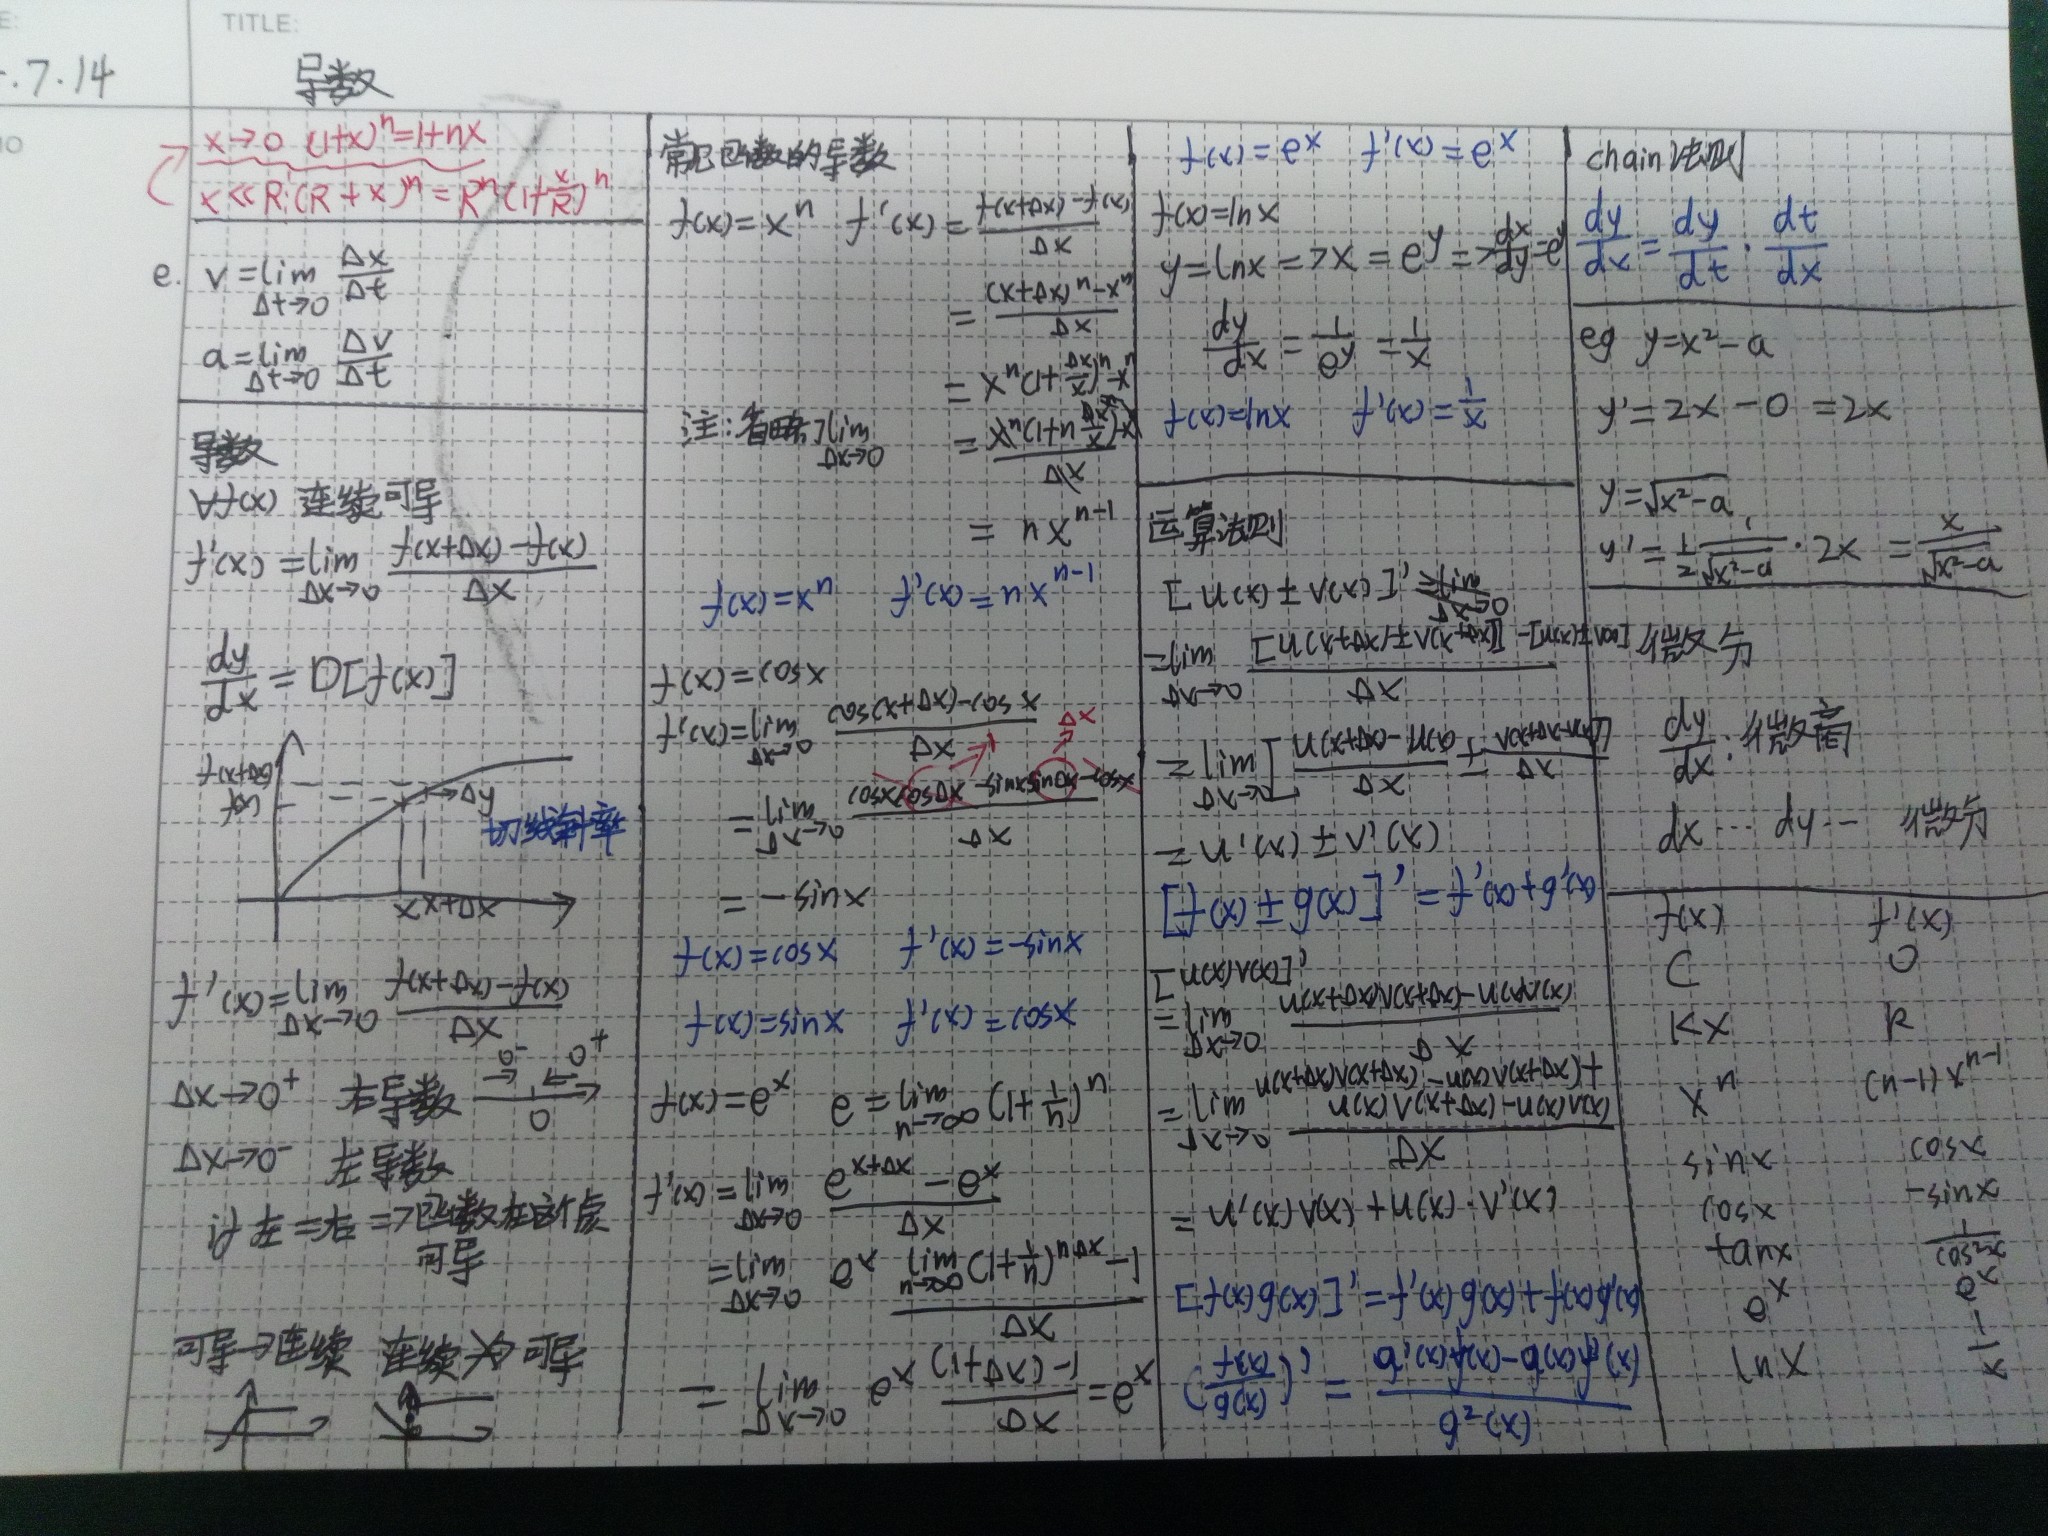 TITLE:
.7.14
导数
x→0 (1+x)ⁿ=1+nx
x≪R:(R+x)ⁿ=Rⁿ(1+x/R)ⁿ
e. v=lim Δt→0 Δx/Δt
a=lim Δt→0 Δv/Δt
导数
∀f(x) 连续可导
f'(x)=lim Δx→0 (f(x+Δx)-f(x))/Δx
dy/dx=D[f(x)]
f(x+Δx)
f(x)
→Δy
切线斜率
x x+Δx
f'(x)=lim Δx→0 (f(x+Δx)-f(x))/Δx
Δx→0⁺ 右导数 0⁻ 0⁺
0
Δx→0⁻ 左导数
if 左=右=>函数在这个点
可导
可导→连续 连续≯可导
常见函数的导数
f(x)=xⁿ f'(x)=(f(x+Δx)-f(x))/Δx
=((x+Δx)ⁿ-xⁿ)/Δx
=xⁿ(1+Δx/x)ⁿ-xⁿ
注:省略了lim Δx→0 =(xⁿ(1+nΔx/x)-xⁿ)/Δx
=nxⁿ⁻¹
f(x)=xⁿ f'(x)=nxⁿ⁻¹
f(x)=cosx
f'(x)=lim Δx→0 (cos(x+Δx)-cosx)/Δx
Δx
=lim Δx→0 (cosxcosΔx-sinxsinΔx-cosx)/Δx
=-sinx
f(x)=cosx f'(x)=-sinx
f(x)=sinx f'(x)=cosx
f(x)=eˣ e=lim n→∞ (1+1/n)ⁿ
f'(x)=lim Δx→0 (eˣ⁺ᐃˣ-eˣ)/Δx
=lim Δx→0 eˣ (lim n→∞ (1+1/n)ⁿᐃˣ-1)/Δx
=lim Δx→0 eˣ ((1+Δx)-1)/Δx=eˣ
f(x)=eˣ f'(x)=eˣ
f(x)=lnx
y=lnx=>x=eʸ=>dx/dy=eʸ
dy/dx=1/eʸ=1/x
f(x)=lnx f'(x)=1/x
运算法则
[u(x)±v(x)]'=lim Δx→0
=lim Δx→0 ([u(x+Δx)±v(x+Δx)]-[u(x)±v(x)])/Δx
=lim Δx→0 [(u(x+Δx)-u(x))/Δx±(v(x+Δx)-v(x))/Δx]
=u'(x)±v'(x)
[f(x)±g(x)]'=f'(x)+g'(x)
[u(x)v(x)]'
=lim Δx→0 (u(x+Δx)v(x+Δx)-u(x)v(x))/Δx
=lim Δx→0 (u(x+Δx)v(x+Δx)-u(x)v(x+Δx)+
u(x)v(x+Δx)-u(x)v(x))/Δx
=u'(x)v(x)+u(x)·v'(x)
[f(x)g(x)]'=f'(x)g(x)+f(x)g'(x)
(f(x)/g(x))'= /g²(x)
chain法则
dy/dx=dy/dt·dt/dx
eg y=x²-a
y'=2x-0=2x
y=√x²-a
y'=1/2 1/√x²-a·2x=x/√x²-a
微分
dy/dx:微商
dx… dy… 微分
f(x) f'(x)
C 0
kx k
xⁿ (n-1)xⁿ⁻¹
sinx cosx
cosx -sinx
tanx 1/cos²x
eˣ eˣ
lnx 1/x